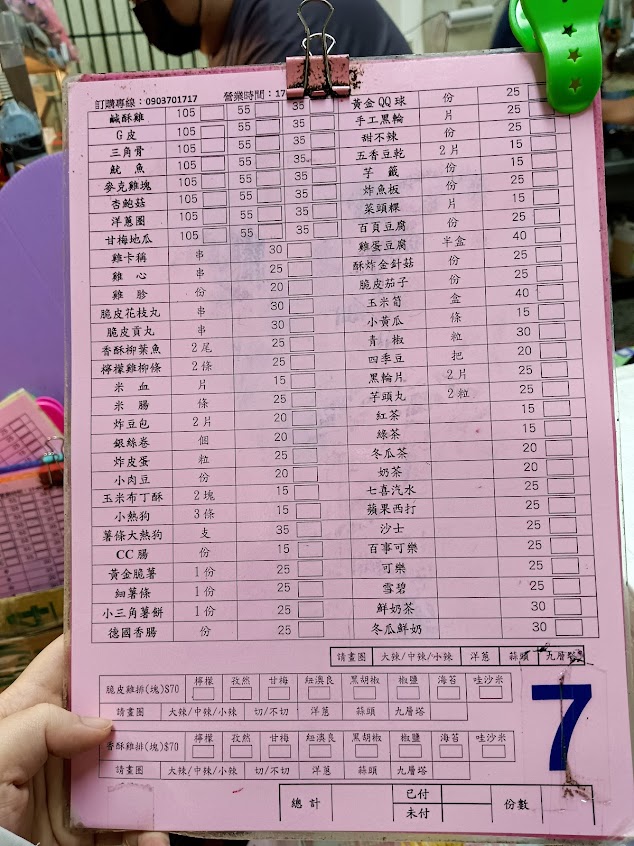 訂購專線：0903701717 營業時間：17
鹹酥雞 105 55 35
G皮 105 55 35
三角骨 105 55 35
魷魚 105 55 35
麥克雞塊 105 55 35
杏鮑菇 105 55 35
洋蔥圈 105 55 35
甘梅地瓜 105 55 35
雞卡稱 串 30
雞心 串 25
雞胗 份 20
脆皮花枝丸 串 30
脆皮貢丸 串 30
香酥柳葉魚 2尾 25
檸檬雞柳條 2條 25
米血 片 15
米腸 條 25
炸豆包 2片 20
銀絲卷 個 20
炸皮蛋 粒 25
小肉豆 份 20
玉米布丁酥 2塊 15
小熱狗 3條 15
薯條大熱狗 支 35
CC腸 份 15
黃金脆薯 1份 25
細薯條 1份 25
小三角薯餅 1份 25
德國香腸 份 25
黃金QQ球 份 25
手工黑輪 片 25
甜不辣 份 25
五香豆乾 2片 15
芋籤 份 25
炸魚板 份 25
菜頭粿 片 15
百頁豆腐 份 25
雞蛋豆腐 半盒 40
酥炸金針菇 份 25
脆皮茄子 份 25
玉米筍 盒 40
小黃瓜 條 15
青椒 粒 30
四季豆 把 20
黑輪片 2片 25
芋頭丸 2粒 25
紅茶 15
綠茶 15
冬瓜茶 20
奶茶 20
七喜汽水 25
蘋果西打 25
沙士 25
百事可樂 25
可樂 25
雪碧 25
鮮奶茶 30
冬瓜鮮奶 30
請畫圈 大辣/中辣/小辣 洋蔥 蒜頭 九層塔
脆皮雞排(塊)$70 檸檬 孜然 甘梅 紐澳良 黑胡椒 椒鹽 海苔 哇沙米
請畫圈 大辣/中辣/小辣 切/不切 洋蔥 蒜頭 九層塔
香酥雞排(塊)$70 檸檬 孜然 甘梅 紐澳良 黑胡椒 椒鹽 海苔 哇沙米
請畫圈 大辣/中辣/小辣 切/不切 洋蔥 蒜頭 九層塔
7
總計 已付 未付 份數